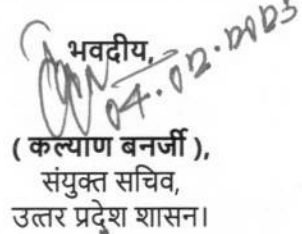 भवदीय,
04.02.2023
( कल्याण बनर्जी ),
संयुक्त सचिव,
उत्तर प्रदेश शासन।